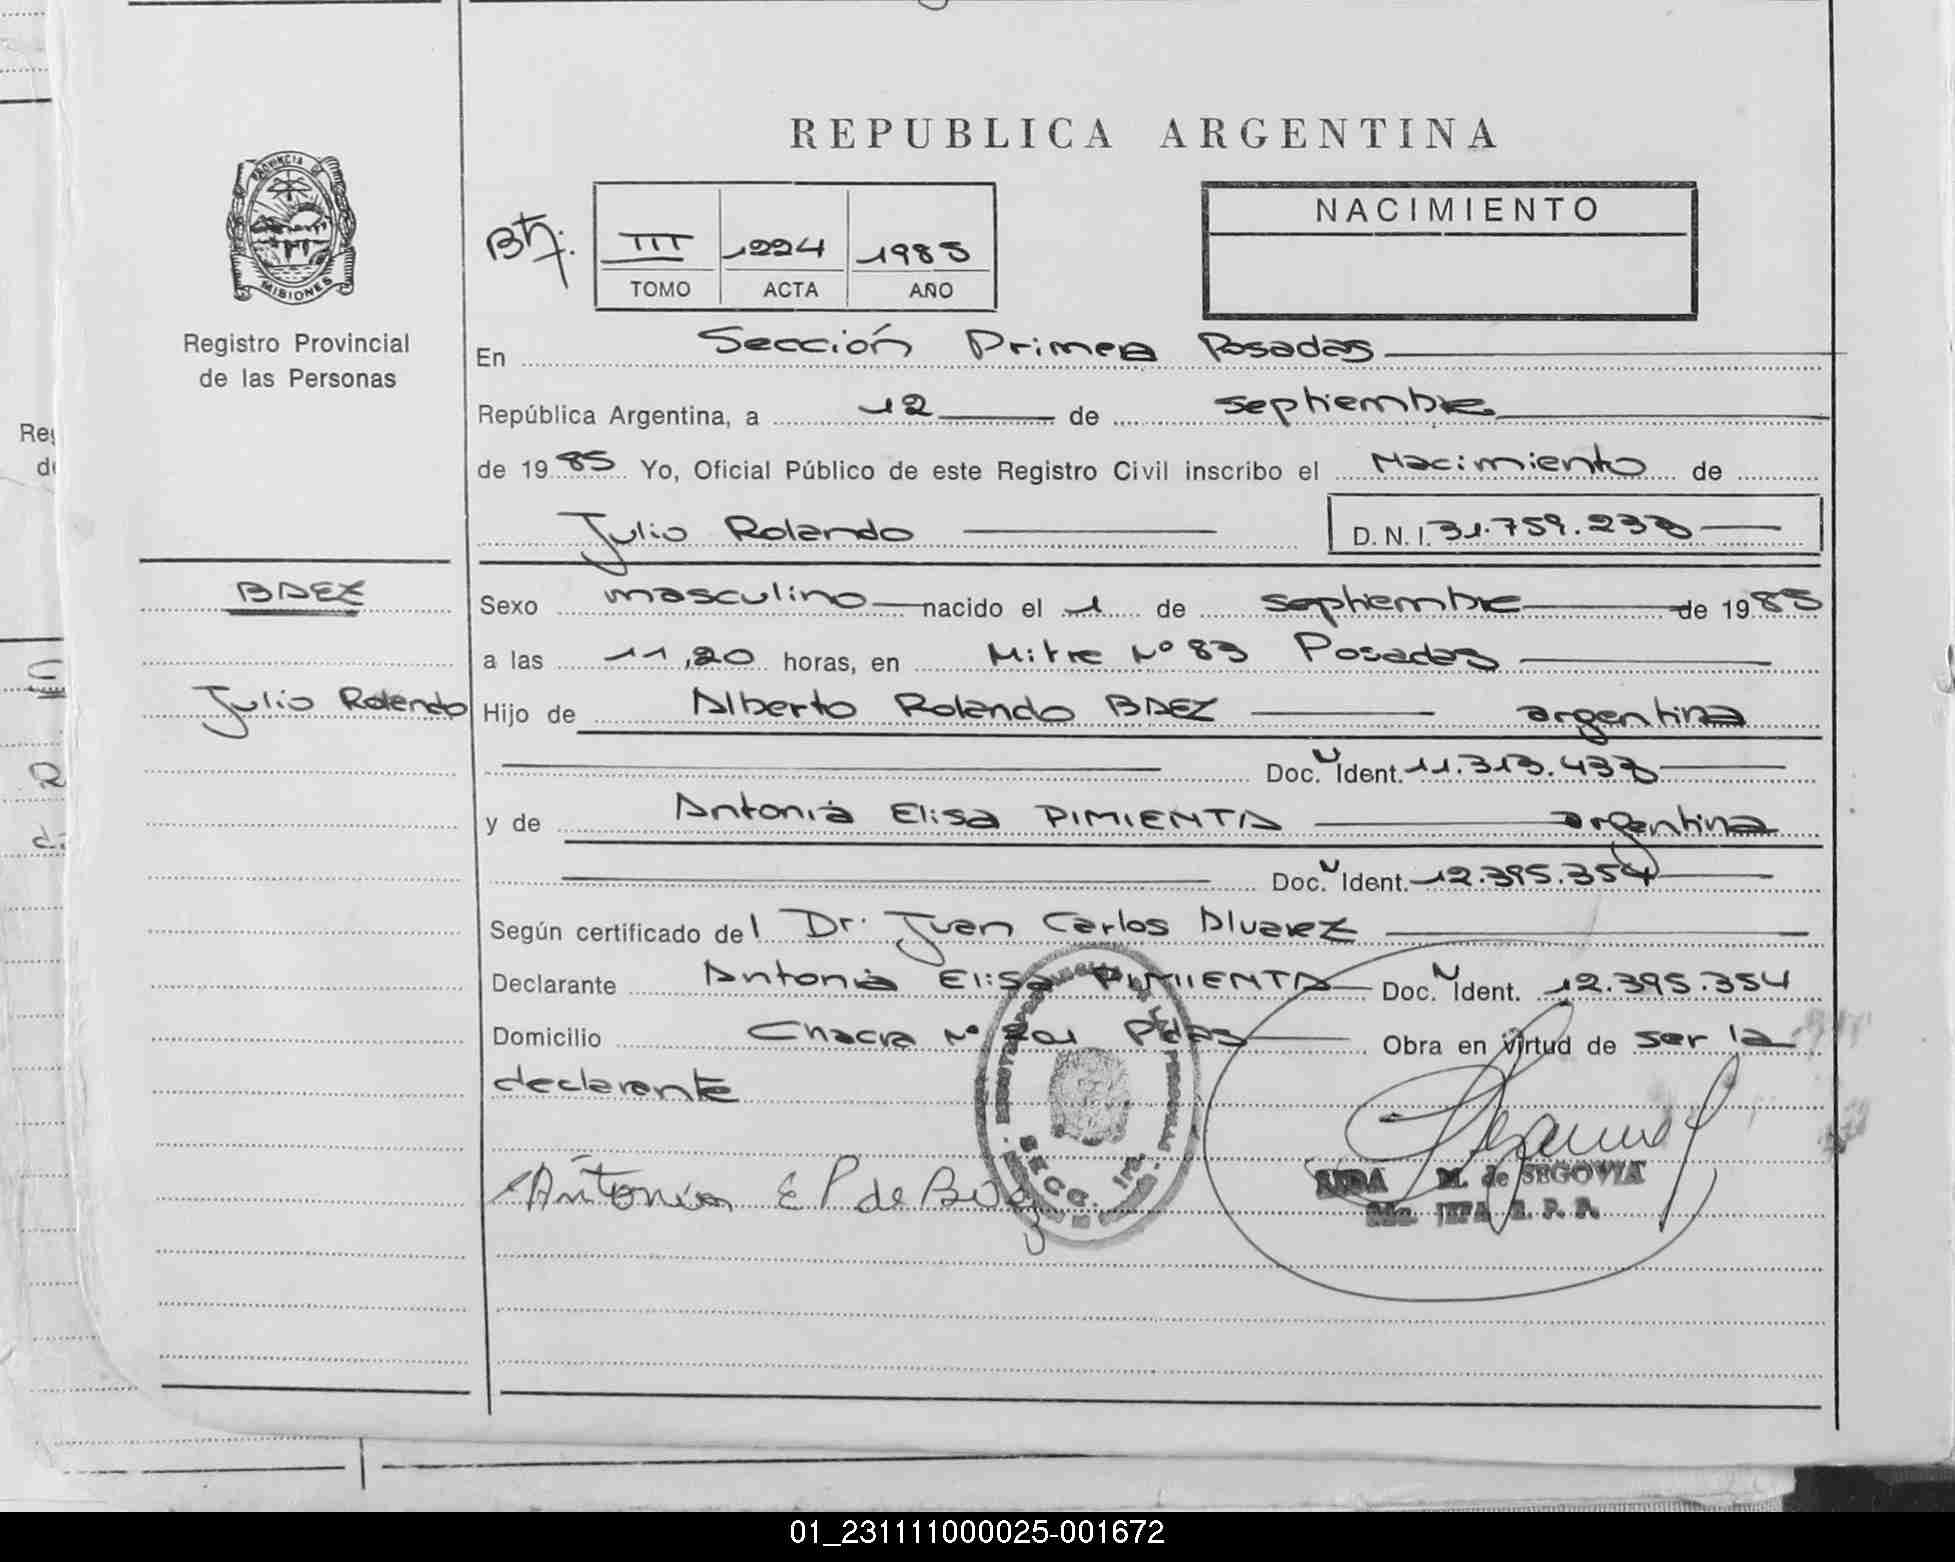 REPUBLICA ARGENTINA
PROVINCIA DE
MISIONES
Registro Provincial
de las Personas
III 1224 1985
TOMO ACTA AÑO
NACIMIENTO
En Sección Primera Posadas
República Argentina, a 12 de septiembre
de 1985 Yo, Oficial Público de este Registro Civil inscribo el Nacimiento de
Julio Rolando D. N. I. 31.759.233
BAEZ
Julio Rolando
Sexo masculino nacido el 1 de septiembre de 1985
a las 11,20 horas, en Mitre Nº 83 Posadas
Hijo de Alberto Rolando BAEZ argentina
Doc. N Ident. 11.313.433
y de Antonia Elisa PIMIENTA argentina
Doc. N Ident. 12.395.354
Según certificado del Dr. Juan Carlos Alvarez
Declarante Antonia Elisa PIMIENTA Doc. N Ident. 12.395.354
Domicilio Chacra Nº 201 Pdas Obra en virtud de ser la
declarante
Antonia E P de Baez
SECC. 1ra.
M. de SEGOVIA
JEFA R. P. P.
01_231111000025-001672